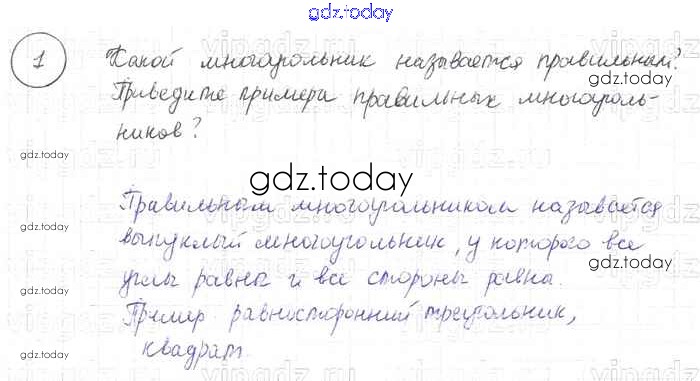 gdz.today
1 Какой многоугольник называется правильным?
Приведите примера правильных многоуголь-
ников?
gdz.today
gdz.today
gdz.today
gdz.today
Правильным многоугольником называется
выпуклый многоугольник, у которого все
gdz.today
gdz.today
углы равны и все стороны равны.
Пример равносторонний треугольник,
квадрат.
gdz.today
gdz.today